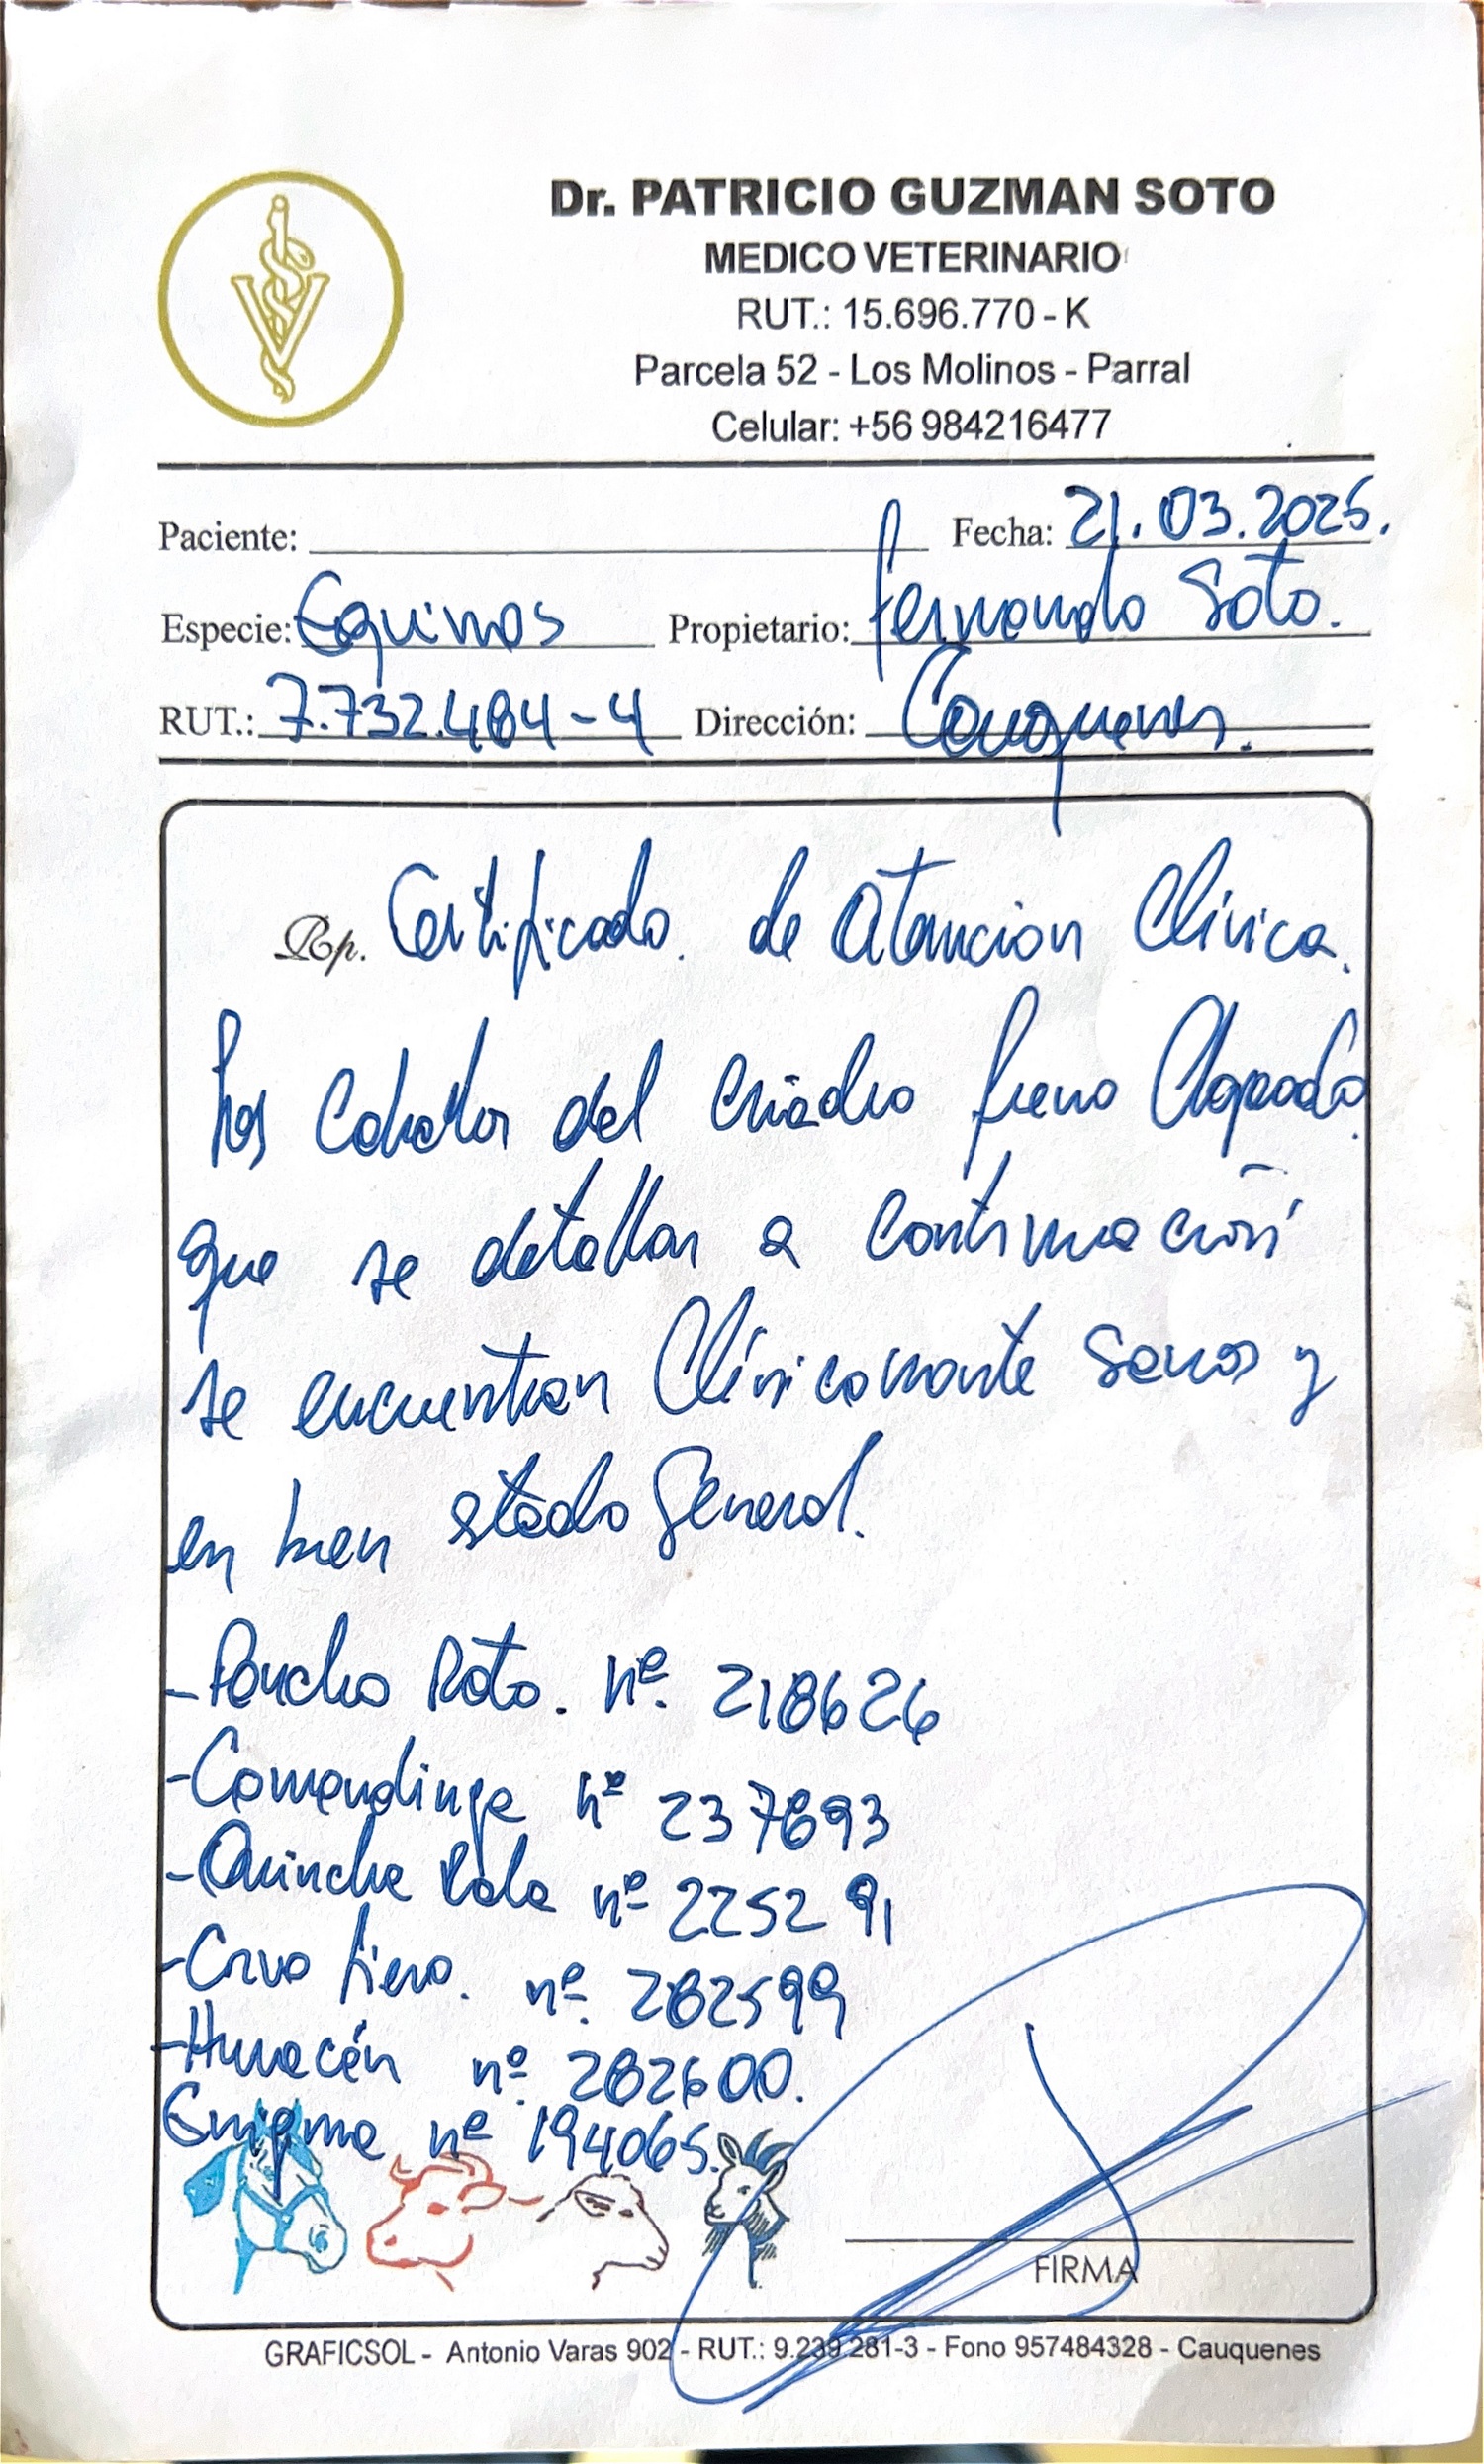 Dr. PATRICIO GUZMAN SOTO
MEDICO VETERINARIO
RUT.: 15.696.770 - K
Parcela 52 - Los Molinos - Parral
Celular: +56 984216477
Paciente: Fecha: 21.03.2025.
Especie: Equinos Propietario: Fernando Soto.
RUT.: 7.732.484-4 Dirección: Cauquenes.
Rp. Certificado. de Atancion Clínica.
Los Caballos del Criadero freno Chapeado.
que se detallan a continuación
se encuentran Clínicamente Sanos y
en buen estado General.
- Poncho Roto. nº. 218626
- Comendinga nº 237893
- Quincha Rala nº 225291
- Corvo fiero. nº. 282599
- Huracán nº 282600.
Enigma nº 194065.
FIRMA
GRAFICSOL - Antonio Varas 902 - RUT.: 9.239.281-3 - Fono 957484328 - Cauquenes